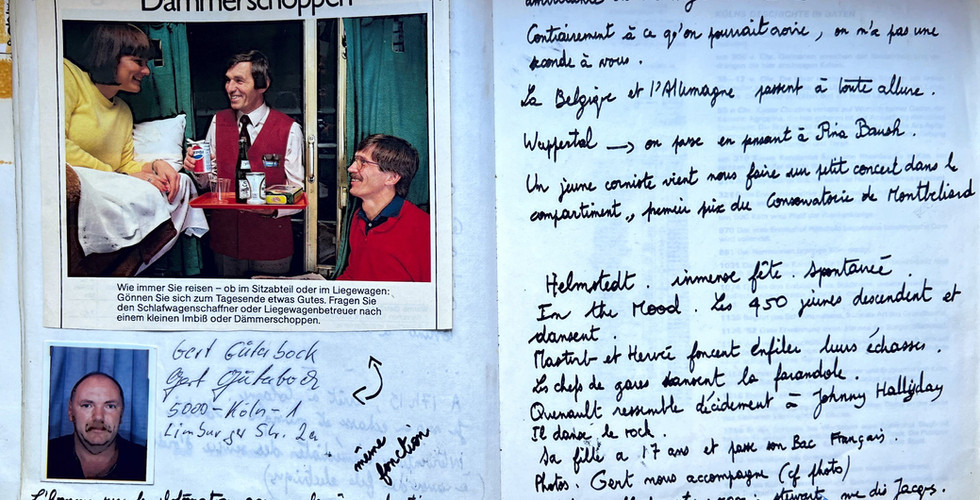 Dämmerschoppen
Wie immer Sie reisen – ob im Sitzabteil oder im Liegewagen:
Gönnen Sie sich zum Tagesende etwas Gutes. Fragen Sie
den Schlafwagenschaffner oder Liegewagenbetreuer nach
einem kleinen Imbiß oder Dämmerschoppen.
Gert Güterbock
Gert Güterbock
5000-Köln-1
Limburger Str. 2a
même
fonction
Contrairement à ce qu'on pourrait croire, on n'a pas une
seconde à vous.
La Belgique et l'Allemagne passent à toute allure.
Wuppertal → on passe en pensant à Pina Bausch.
Un jeune corniste vient nous faire un petit concert dans le
compartiment, premier prix du Conservatoire de Montbéliard
Helmstedt. immense fête. spontanée.
In the Mood. Les 450 jeunes descendent et
dansent.
et Hervé foncent enfiler leurs échasses.
Les chefs de gares dansent la farandole.
Quenault ressemble décidement à Johnny Hallyday
Il danse le rock.
Sa fille a 17 ans et passe son Bac Français.
Photos. Gert nous accompagne (cf photo)
stewart, rue des